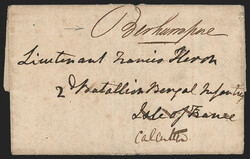 Berhampore
Lieutenant Francis Heron
2 Battallion Bengal Infantry
Isle of France
Calcutta